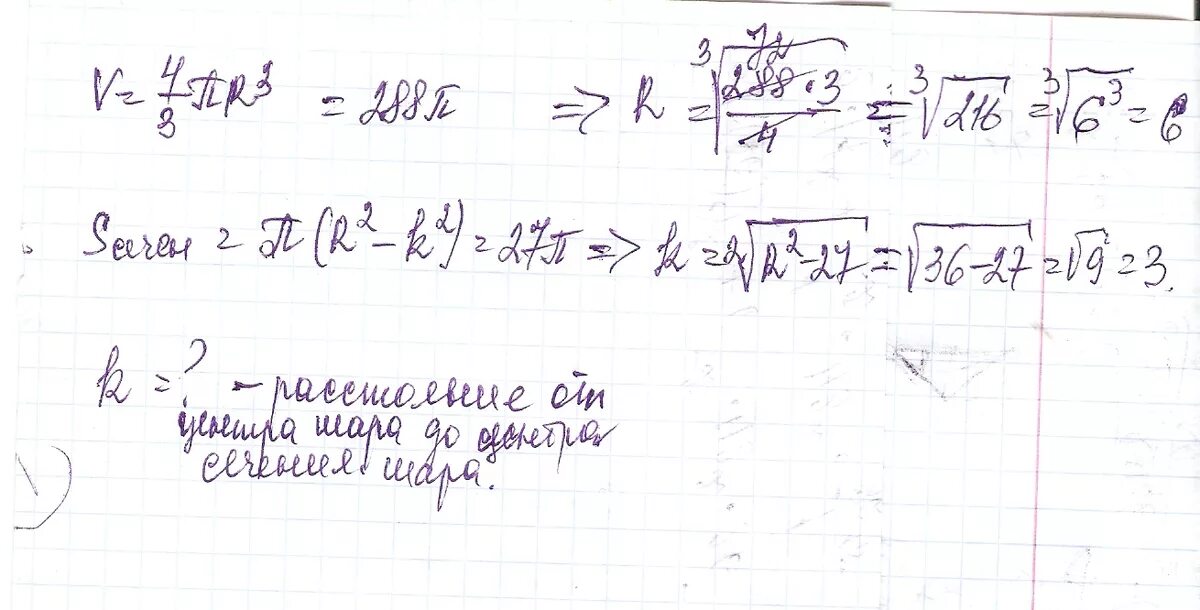 V = 4/3 πR³ = 288π => R = ∛(72 288·3 / 4) = ∛216 = ∛6³ = 6
Sсечен = π(R² - k²) = 27π => k = ²√(R² - 27) = √(36-27) = √9 = 3.
k = ? - расстояние от
центра шара до центра
сечения шара.